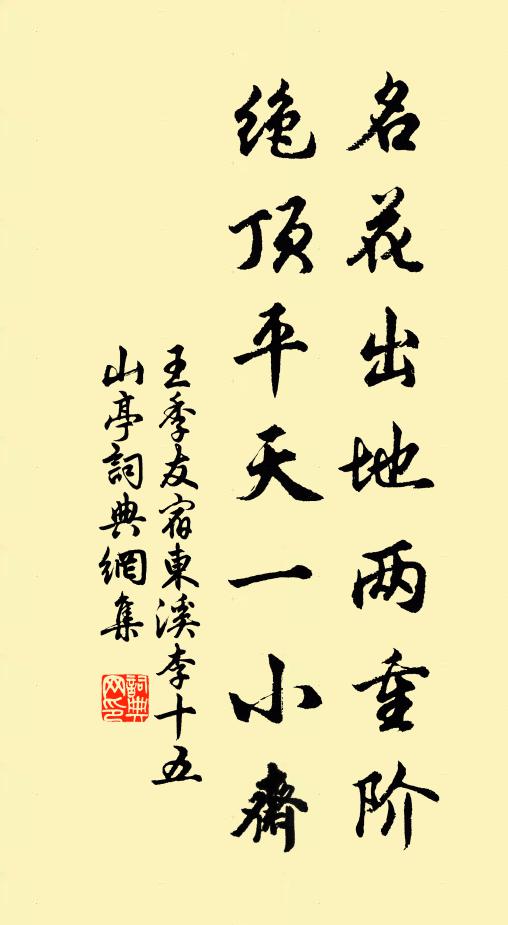 名花出地两重阶
绝顶平天一小斋
王季友宿東溪李十五
山亭詞典網集
詞典
网印